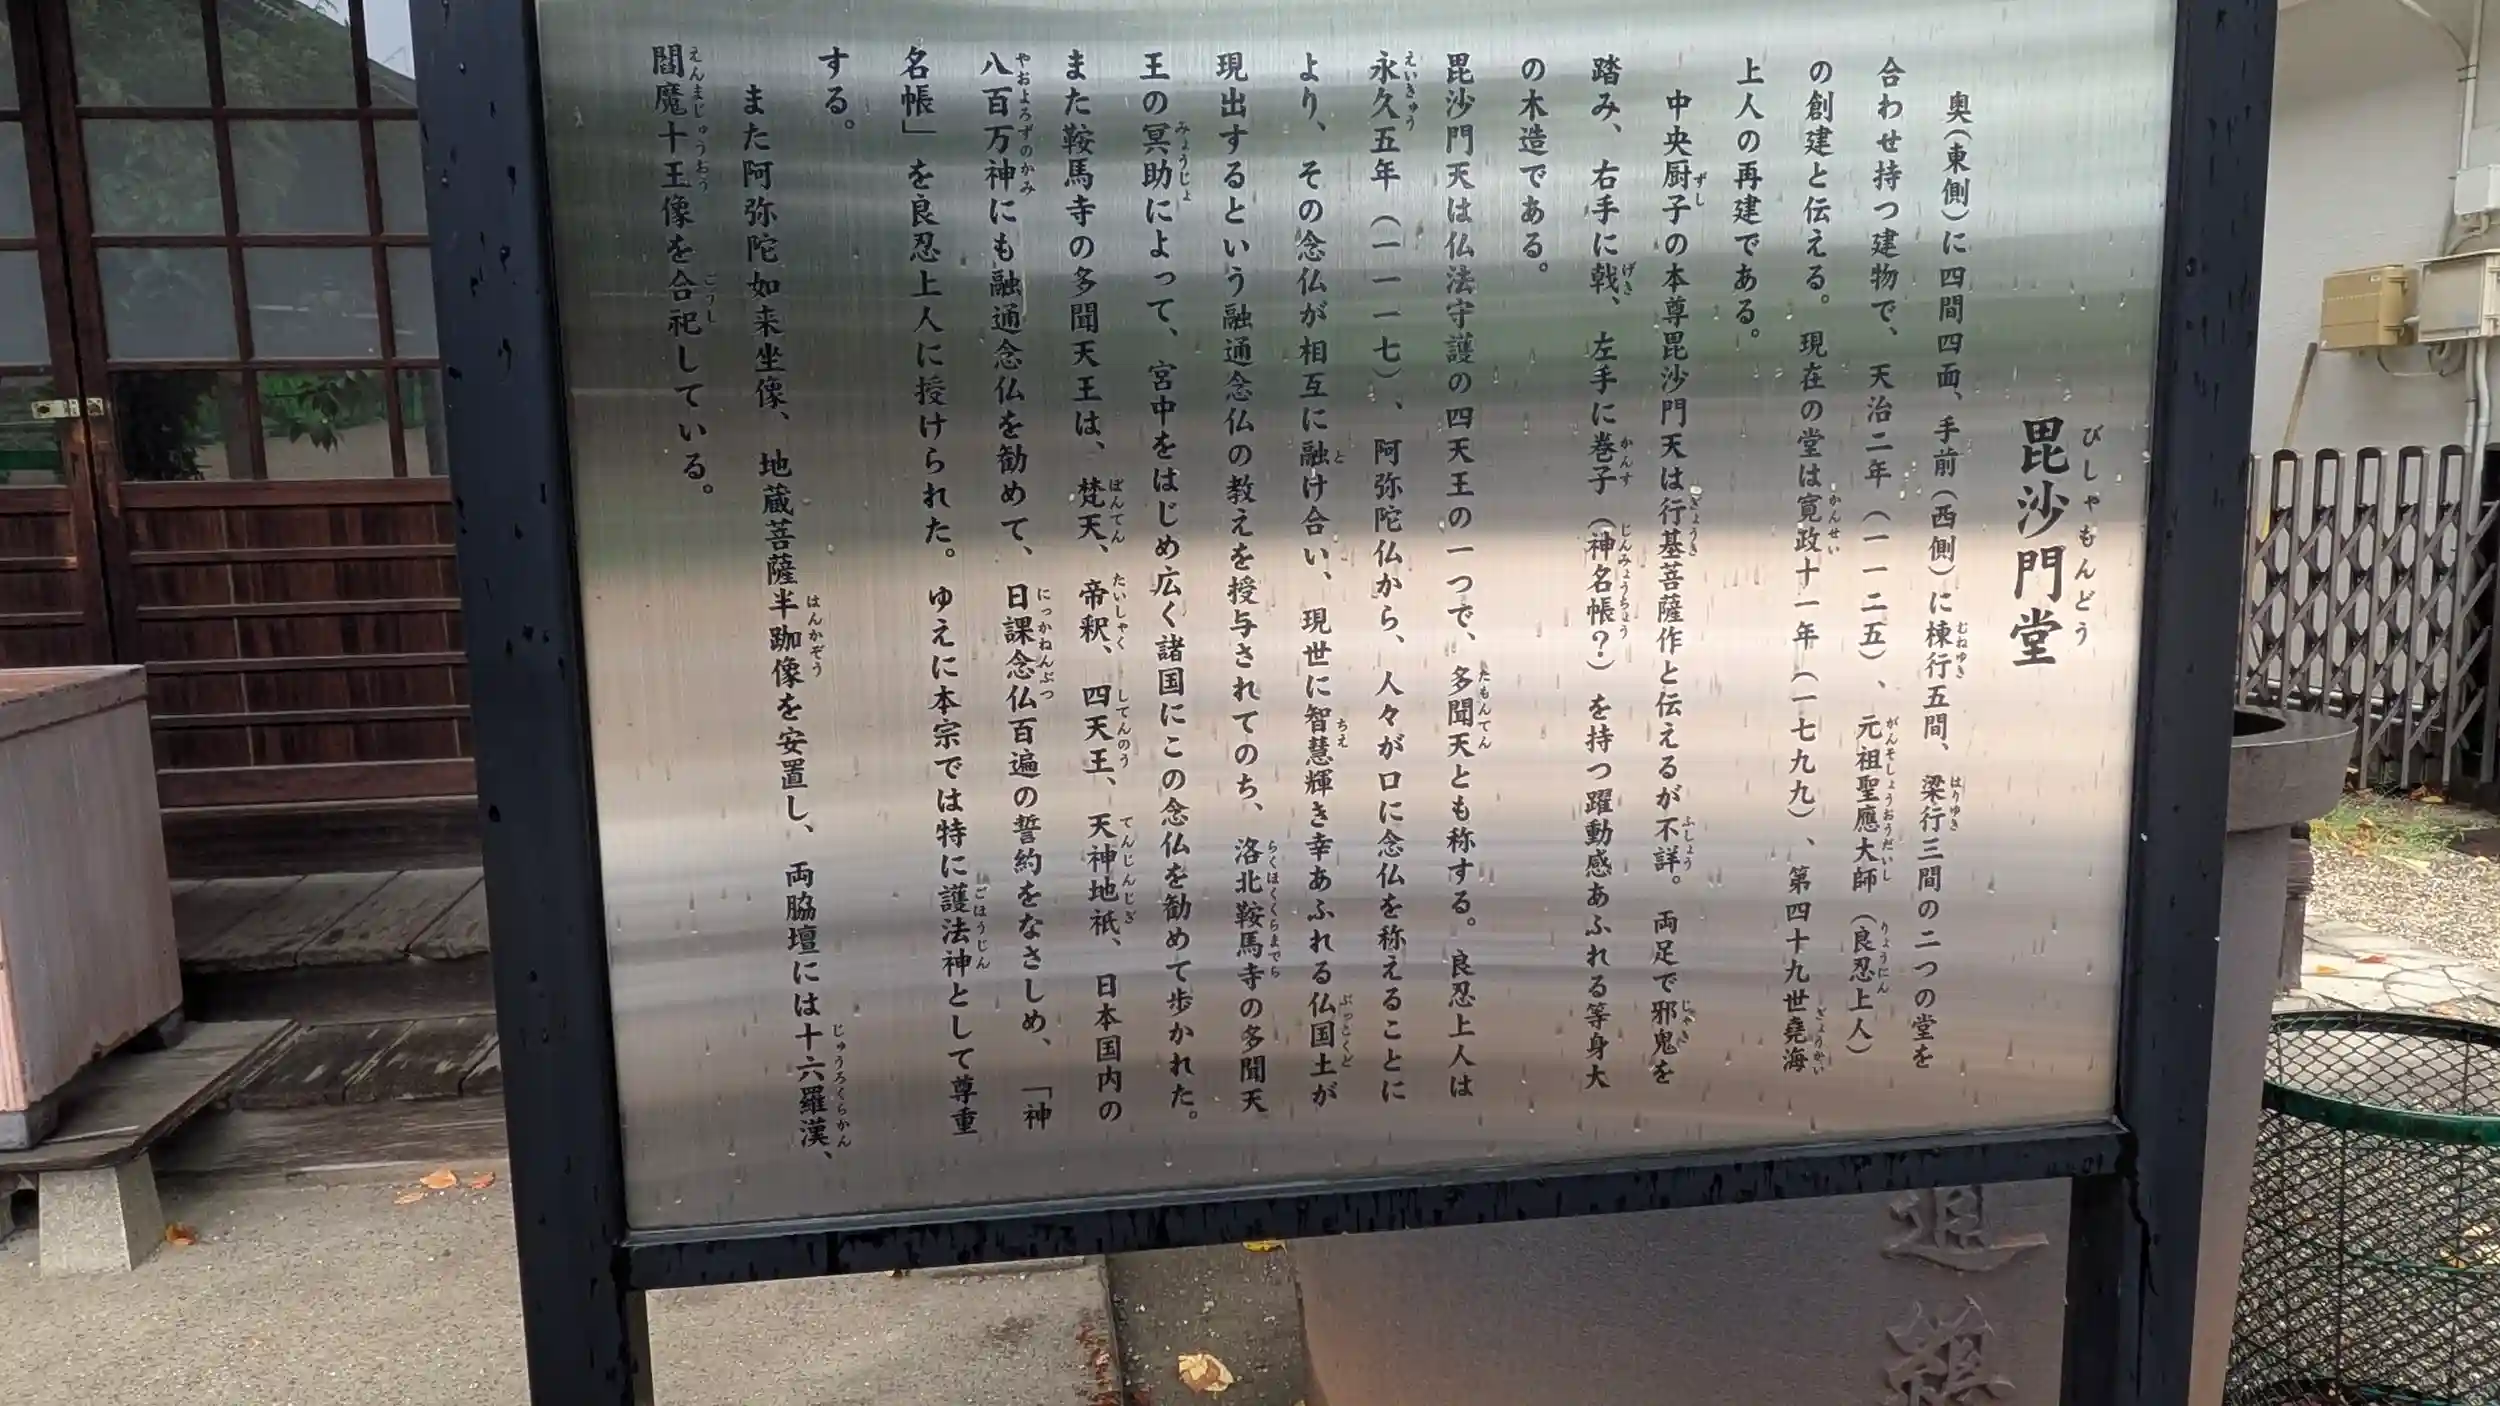 毘沙門堂
びしゃもんどう
奥(東側)に四間四面、手前(西側)に棟行五間、梁行三間の二つの堂を
むねゆき はりゆき
合わせ持つ建物で、天治二年(一一二五)、元祖聖應大師(良忍上人)
がんそしょうおうだいし りょうにん
の創建と伝える。現在の堂は寛政十一年(一七九九)、第四十九世堯海
かんせい ぎょうかい
上人の再建である。
中央厨子の本尊毘沙門天は行基菩薩作と伝えるが不詳。両足で邪鬼を
ずし ぎょうき ふしょう じゃき
踏み、右手に戟、左手に巻子(神名帳?)を持つ躍動感あふれる等身大
げき かんす じんみょうちょう
の木造である。
毘沙門天は仏法守護の四天王の一つで、多聞天とも称する。良忍上人は
たもんてん
永久五年(一一一七)、阿弥陀仏から、人々が口に念仏を称えることに
えいきゅう
より、その念仏が相互に融け合い、現世に智慧輝き幸あふれる仏国土が
と ちえ ぶっこくど
現出するという融通念仏の教えを授与されてのち、洛北鞍馬寺の多聞天
らくほくくらまでら
王の冥助によって、宮中をはじめ広く諸国にこの念仏を勧めて歩かれた。
みょうじょ
また鞍馬寺の多聞天王は、梵天、帝釈、四天王、天神地祇、日本国内の
ぼんてん たいしゃく してんのう てんじんじぎ
八百万神にも融通念仏を勧めて、日課念仏百遍の誓約をなさしめ、「神
やおよろずのかみ にっかねんぶつ
名帳」を良忍上人に授けられた。ゆえに本宗では特に護法神として尊重
ごほうじん
する。
また阿弥陀如来坐像、地蔵菩薩半跏像を安置し、両脇壇には十六羅漢、
はんかぞう じゅうろくらかん
閻魔十王像を合祀している。
えんまじゅうおう ごうし